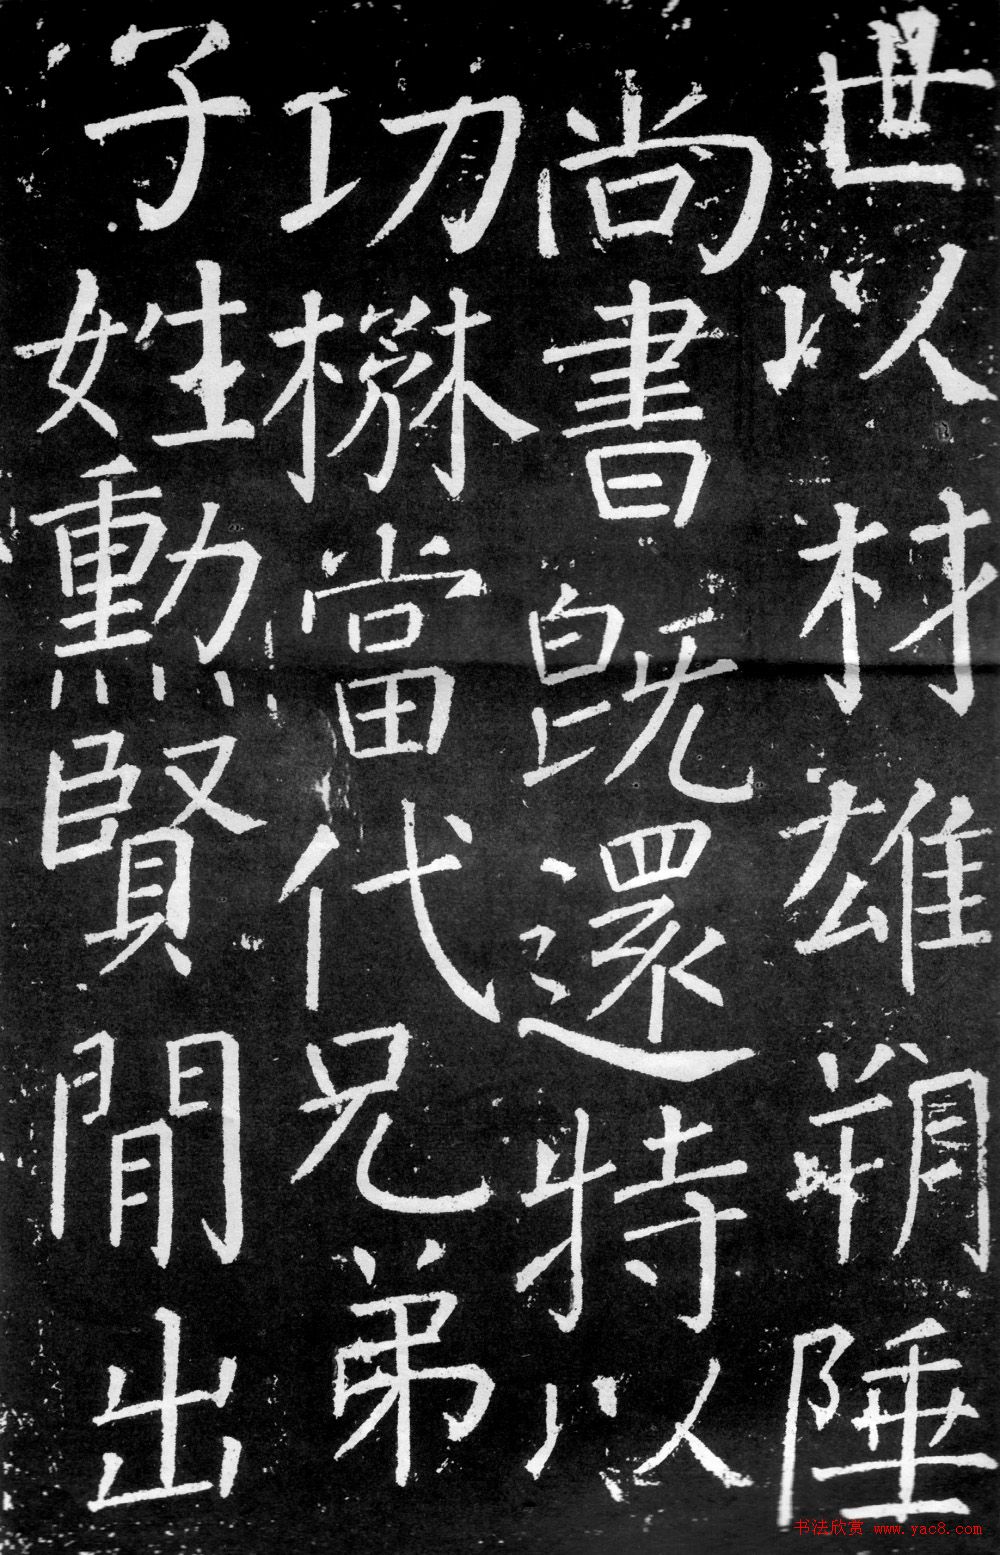 世以材雄朔陲
尚書既還特以
功楙當代兄弟
子姓勳賢間出
书法欣赏 www.yac8.com